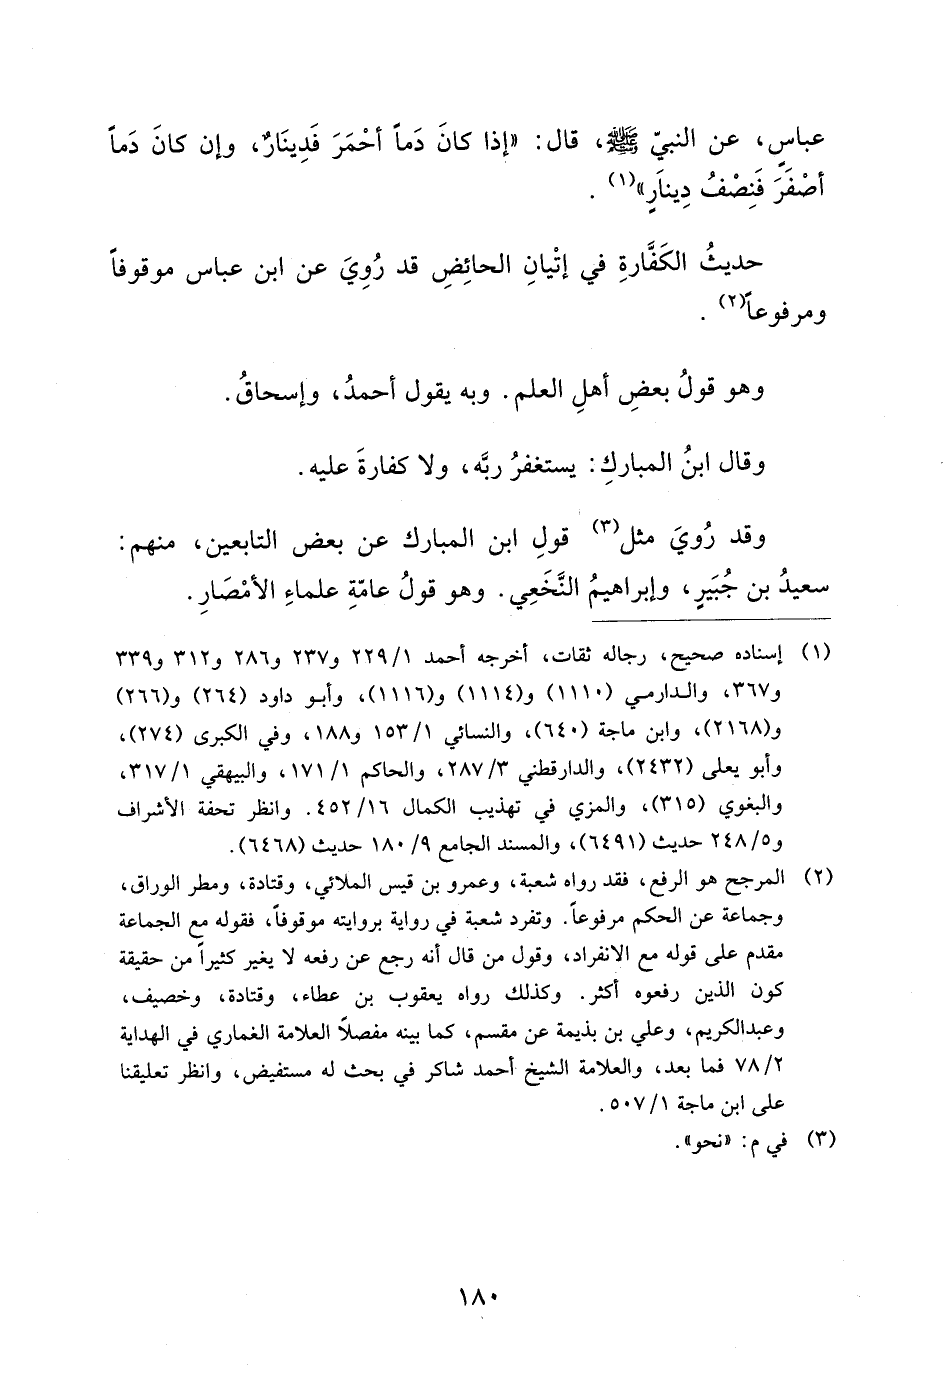 عباسٍ، عن النبيّ ﷺ، قال: «إذا كانَ دَماً أحْمَرَ فَدِينَارٌ، وإن كانَ دَماً
أصْفَرَ فَنِصْفُ دِينارٍ»(١) .
حديثُ الكَفَّارةِ في إتْيانِ الحائِضِ قد رُوِيَ عن ابن عباس موقوفاً
ومرفوعاً(٢) .
وهو قولُ بعضِ أهلِ العلم. وبه يقول أحمدُ، وإسحاقُ.
وقال ابنُ المباركِ: يستغفرُ ربَّه، ولا كفارةَ عليه.
وقد رُويَ مثل(٣) قولِ ابن المبارك عن بعض التابعين، منهم:
سعيدُ بن جُبَيرٍ، وإبراهيمُ النَّخَعِي. وهو قولُ عامّةِ علماءِ الأمْصَارِ.
(١) إسناده صحيح، رجاله ثقات، أخرجه أحمد ١/ ٢٢٩ و٢٣٧ و٢٨٦ و٣١٢ و٣٣٩
و٣٦٧، والدارمي (١١١٠) و(١١١٤) و(١١١٦)، وأبو داود (٢٦٤) و(٢٦٦)
و(٢١٦٨)، وابن ماجة (٦٤٠)، والنسائي ١/ ١٥٣ و١٨٨، وفي الكبرى (٢٧٤)،
وأبو يعلى (٢٤٣٢)، والدارقطني ٣/ ٢٨٧، والحاكم ١/ ١٧١، والبيهقي ١/ ٣١٧،
والبغوي (٣١٥)، والمزي في تهذيب الكمال ١٦/ ٤٥٢. وانظر تحفة الأشراف
و٥/ ٢٤٨ حديث (٦٤٩١)، والمسند الجامع ٩/ ١٨٠ حديث (٦٤٦٨).
(٢) المرجح هو الرفع، فقد رواه شعبة، وعمرو بن قيس الملائي، وقتادة، ومطر الوراق،
وجماعة عن الحكم مرفوعاً. وتفرد شعبة في رواية بروايته موقوفاً، فقوله مع الجماعة
مقدم على قوله مع الانفراد، وقول من قال أنه رجع عن رفعه لا يغير كثيراً من حقيقة
كون الذين رفعوه أكثر. وكذلك رواه يعقوب بن عطاء، وقتادة، وخصيف،
وعبدالكريم، وعلي بن بذيمة عن مقسم، كما بينه مفصلاً العلامة الغماري في الهداية
٢/ ٧٨ فما بعد، والعلامة الشيخ أحمد شاكر في بحث له مستفيض، وانظر تعليقنا
على ابن ماجة ١/ ٥٠٧.
(٣) في م: «نحو».
١٨٠